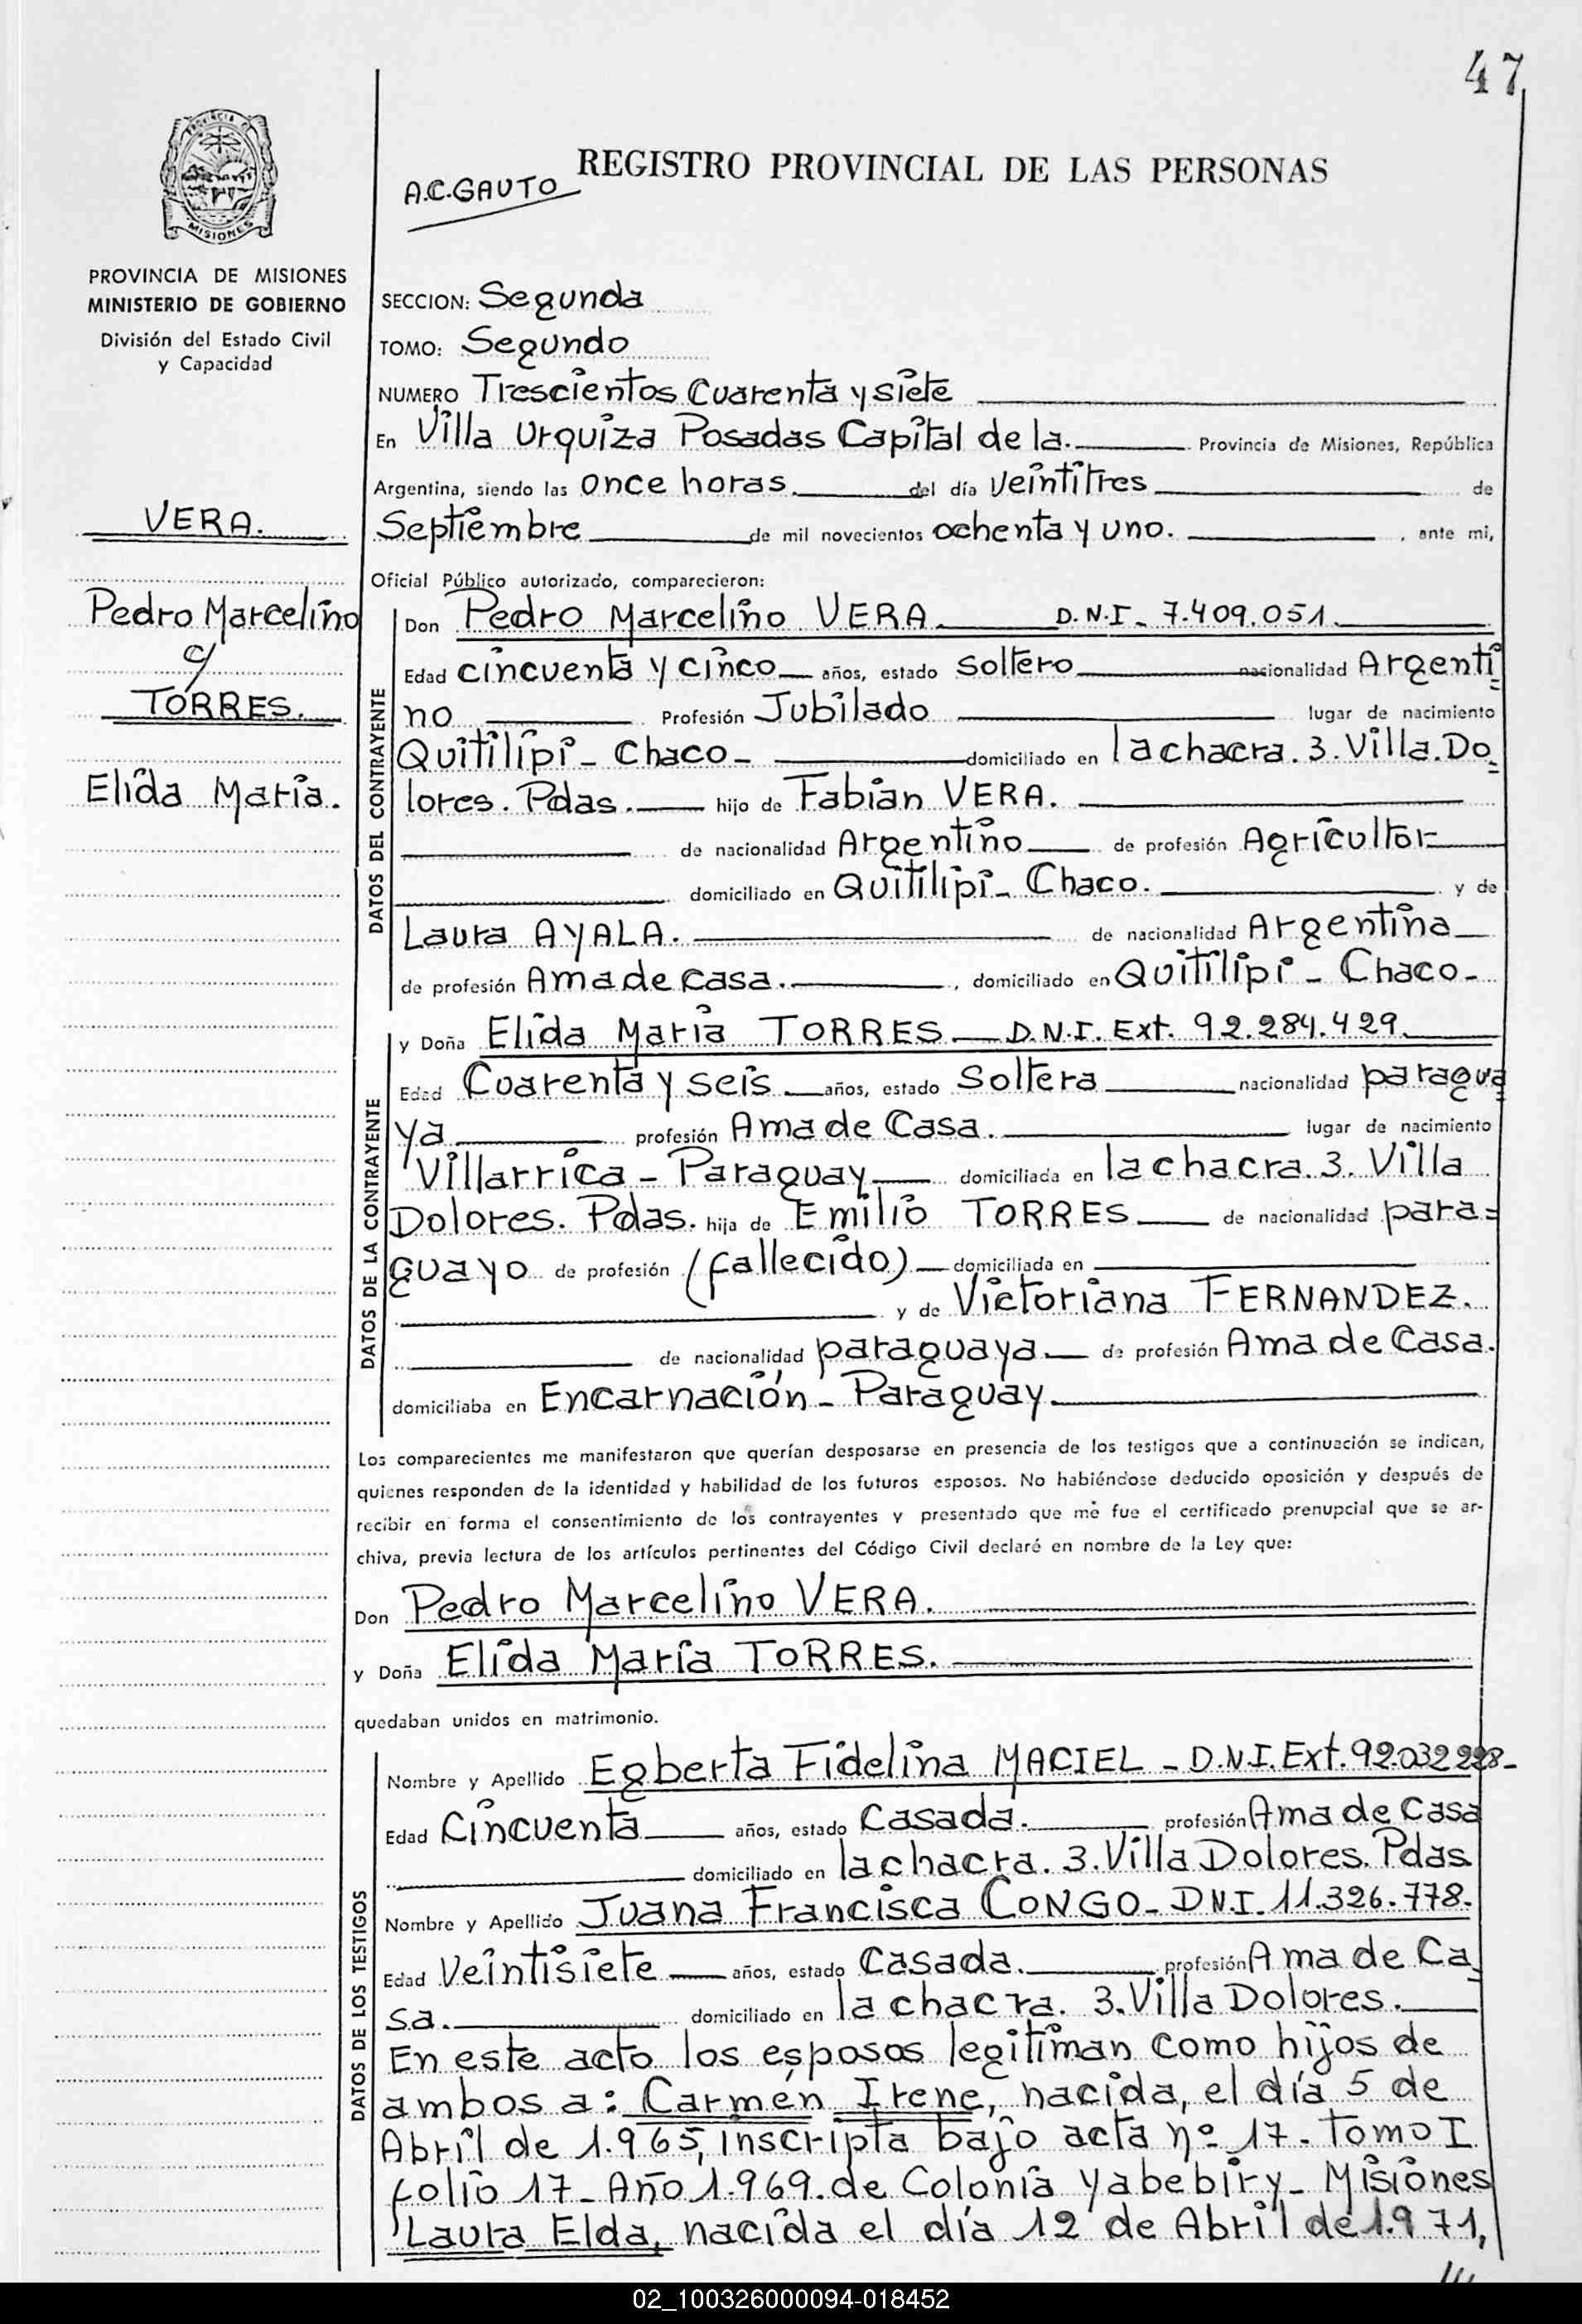 47
PROVINCIA DE
MISIONES
REGISTRO PROVINCIAL DE LAS PERSONAS
A.C.GAUTO
PROVINCIA DE MISIONES
MINISTERIO DE GOBIERNO
División del Estado Civil
y Capacidad
VERA.
Pedro Marcelino
c/
TORRES.
Elida María.
SECCION: Segunda
TOMO: Segundo
NUMERO Trescientos Cuarenta y siete
En Villa Urquiza Posadas Capital de la. Provincia de Misiones, República
Argentina, siendo las once horas. del día Veintitres de
Septiembre de mil novecientos ochenta y uno. , ante mi,
Oficial Público autorizado, comparecieron:
DATOS DEL CONTRAYENTE
Don Pedro Marcelino VERA. D.N.I. 7.409.051.
Edad cincuenta y cinco años, estado soltero nacionalidad Argenti
no Profesión Jubilado lugar de nacimiento
Quitilipi - Chaco - domiciliado en la chacra. 3. Villa. Do
lores. Pdas. hijo de Fabián VERA.
de nacionalidad Argentino de profesión Agricultor
domiciliado en Quitilipi - Chaco. y de
Laura AYALA. de nacionalidad Argentina
de profesión Ama de casa. , domiciliado en Quitilipi - Chaco -
DATOS DE LA CONTRAYENTE
y Doña Elida María TORRES D.N.I. Ext. 92.284.429.
Edad Cuarenta y seis años, estado Soltera nacionalidad paragua
ya profesión Ama de Casa. lugar de nacimiento
Villarrica - Paraguay domiciliada en la chacra. 3. Villa
Dolores. Pdas. hija de Emilio TORRES de nacionalidad para=
guayo de profesión (fallecido) domiciliada en
y de Victoriana FERNANDEZ.
de nacionalidad paraguaya de profesión Ama de Casa.
domiciliaba en Encarnación - Paraguay.
Los comparecientes me manifestaron que querían desposarse en presencia de los testigos que a continuación se indican,
quienes responden de la identidad y habilidad de los futuros esposos. No habiéndose deducido oposición y después de
recibir en forma el consentimiento de los contrayentes y presentado que me fue el certificado prenupcial que se ar-
chiva, previa lectura de los artículos pertinentes del Código Civil declaré en nombre de la Ley que:
Don Pedro Marcelino VERA.
y Doña Elida María TORRES.
quedaban unidos en matrimonio.
DATOS DE LOS TESTIGOS
Nombre y Apellido Egberta Fidelina MACIEL - D.N.I. Ext. 92.032.228-
Edad Cincuenta años, estado Casada. profesión Ama de Casa
domiciliado en la chacra. 3. Villa Dolores. Pdas
Nombre y Apellido Juana Francisca CONGO - DNI. 11.326.778.
Edad Veintisiete años, estado Casada. profesión Ama de Ca
sa. domiciliado en la chacra. 3. Villa Dolores.
En este acto los esposos legitiman como hijos de
ambos a: Carmen Irene, nacida, el día 5 de
Abril de 1.965, inscripta bajo acta nº 17. Tomo I
folio 17 - Año 1.969. de Colonia Yabebiry - Misiones
Laura Elda, nacida el día 12 de Abril de 1.971,
02_100326000094-018452